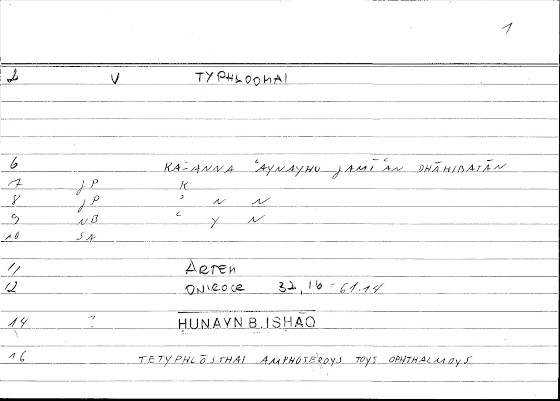 1
2 V TYPHLOOMAI
6 KA-ANNA ʿAYNAYHU JAMĪʿAN DHĀHIBATĀN
7 JP K
8 JP ʾ N N
9 NB ʿ Y N
10 SN
11 ARTEM
12 ONIROCR 32,16 - 61.14
14 ? ḤUNAYN B. ISḤĀQ
16 TETYPHLŌSTHAI AMPHOTEROYS TOYS OPHTHALMOYS